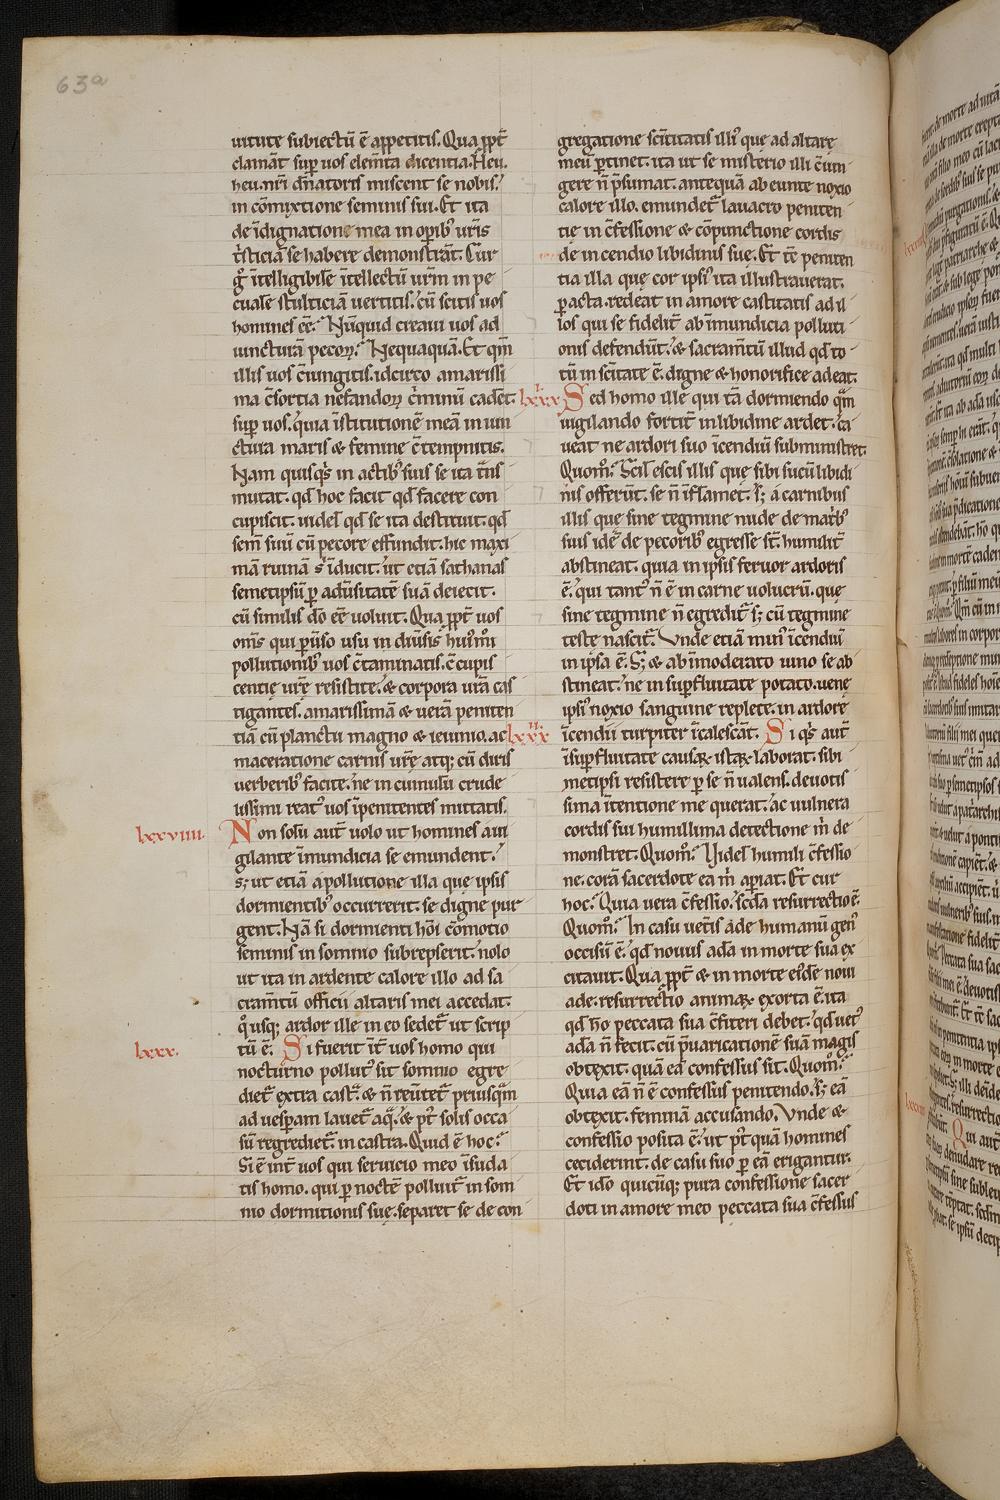 63a
uitute subiectū ē appetitis. Qua ꝓpt̄
clamāt sup uos elem̄ta dicentia. Heu.
heu. nr̄i dn̄atoris miscent se nobis.
in cōmixtione seminis sui. Et ita
de īdignatione mea in opib; ur̄is
t̄sticiā se habere demonstrāt. Cur
ḡ ītelligibilē ītellectū urm̄ in pe
cualē stulticiā uertitis. cū scitis uos
homines eē? Nūquid creaui uos ad
iuncturā pecoꝝ? Nequaquā. Et qm̄
illis uos c̄iungitis. idcirco amarissi
ma c̄sortia nefandoꝝ c̍minū cadēt
sup uos. quia īstitutionē meā in iun
ctura maris & femine c̄tempnitis.
Nam quisq̍s in actib; suis se ita t̄ns
mutat. qd hoc facit qd facere con
cupiscit. uidel̄ qd se ita destituit. qd
sem̄ suū cū pecore effundit. hic maxi
mā ruinā s̍ īducit. ut etiā sathanas
semetipsū ꝑ adūsitatē suā deiecit.
cū similis dō eē uoluit. Qua ꝓpt̄ uos
om̄s qui pūso usu in diūsis hui᷒mī
pollutionib; uos c̄taminatis. c̄cupis
centie urē resistite. & corpora urā cas
tigantes. amarissimā & uerā peniten
tiā cū planctu magno & ieiunio. ac
maceratione carnis urē atq; cū duris
uerberib; facite. ne in cumulū crude
lissimi reat᷒ uos īpenitentes mittatis.
lxxviiii. Non solū aut̄ uolo ut homines a ui
gilante īmundicia se emundent.
s; ut etiā a pollutione illa que ipsis
dormientib; occurrerit. se digne pur
gent. Nā si dormienti hōi cōmotio
seminis in somno subrepserit. nolo
ut ita in ardente calore illo ad sa
cram̄tū officii altaris mei accedat.
q̊usq; ardor ille in eo sedet̄ ut scrip
lxxx. tū ē. Si fuerit īt̄ uos homo qui
nocturno pollut᷒ sit somno egre
diet̄ extra castˢ. & n̄ reūtet̄ priusquā
ad uesꝑam lauet̄ aq̄. & pt̄ solis occa
sū regrediet̄ in castra. Quid ē hoc?
Si ē int̄ uos qui seruicio meo īsuda
tis homo. qui ꝑ noctē polluit̄ in som
no dormitionis sue. separet se de con
gregatione sc̄titatis illi᷒ que ad altare
meū ꝑtinet. ita ut se misterio illi c̄iun
gere n̄ p̄sumat. antequā abeunte noxio
calore illo. emundet̄ lauacro peniten
tie in c̄fessione & cōpunctione cordis
de incendio libidinis sue. Et tc̄ peniten
tia illa que cor ipsi᷒ ita illustrauerat.
ꝑacta. redeat in amore castitatis ad il
los qui se fidelit̄ ab īmundicia polluti
onis defendūt. & sacram̄tū illud qd to
tū in sc̄itate ē. digne & honorifice adeat.
lxxxi. Sed homo ille qui tā dormiendo q̄m
uigilando fortit̄ in libidine ardet. ca
ueat ne ardori suo īcendiū subministret.
Quom̊? Scil escis illis que sibi sucū libidi
nis offerūt. se n̄ īflamet. s; a carnibus
illis que sine tegmine nude de matb;
suis idē de pecorib; egresse st̄. humilit̄
abstineat. quia in ipsis feruor ardoris
ē. qui tant᷒ n̄ ē in carne uolucrū. que
sine tegmine n̄ egredit̄. s; cū tegmine
teste nascit̄. Vnde etiā min᷒ īcendiū
in ipsa ē. S; & ab īmoderato uino se ab
stineat. ne in supfluitate potato. uene
ipsi᷒ noxio sanguine replete. in ardore
lxxxii. īcendii turpiter īcalescāt. Si q̍s aut̄
ī supfluitate causaꝝ istaꝝ laborat. sibi
metipsi resistere ꝑ se n̄ ualens. deuotis
sima ītentione me querat. ac uulnera
cordis sui humillima detectione m̍ de
monstret. Quom̊? Videl̄ humili c̄fessio
ne. corā sacerdote ea m̍ apiat. Et cur
hoc? Quia uera c̄fessio. scd̄a resurrectio ē.
Quom̊? In casu uet̄is ade humanū gen᷒
occisū ē. qd nouus adā in morte sua ex
citauit. Qua ꝓpt̄ & in morte ei᷒dē noui
ade. resurrectio animaꝝ exorta ē. ita
qd hō peccata sua c̄fiteri debet. qd uet᷒
adā n̄ fecit. cū p̄uaricationē suā magis
obtexit. quā eā confessus sit. Quom̊?
Quia eā n̄ ē confessus penitendo. s; eā
obtexit. feminā accusando. Vnde &
confessio posita ē. ut pt̄quā homines
ceciderint. de casu suo ꝑ eā erigantur.
Et idō quicūq; pura confessione sacer
doti in amore meo peccata sua c̄fessus